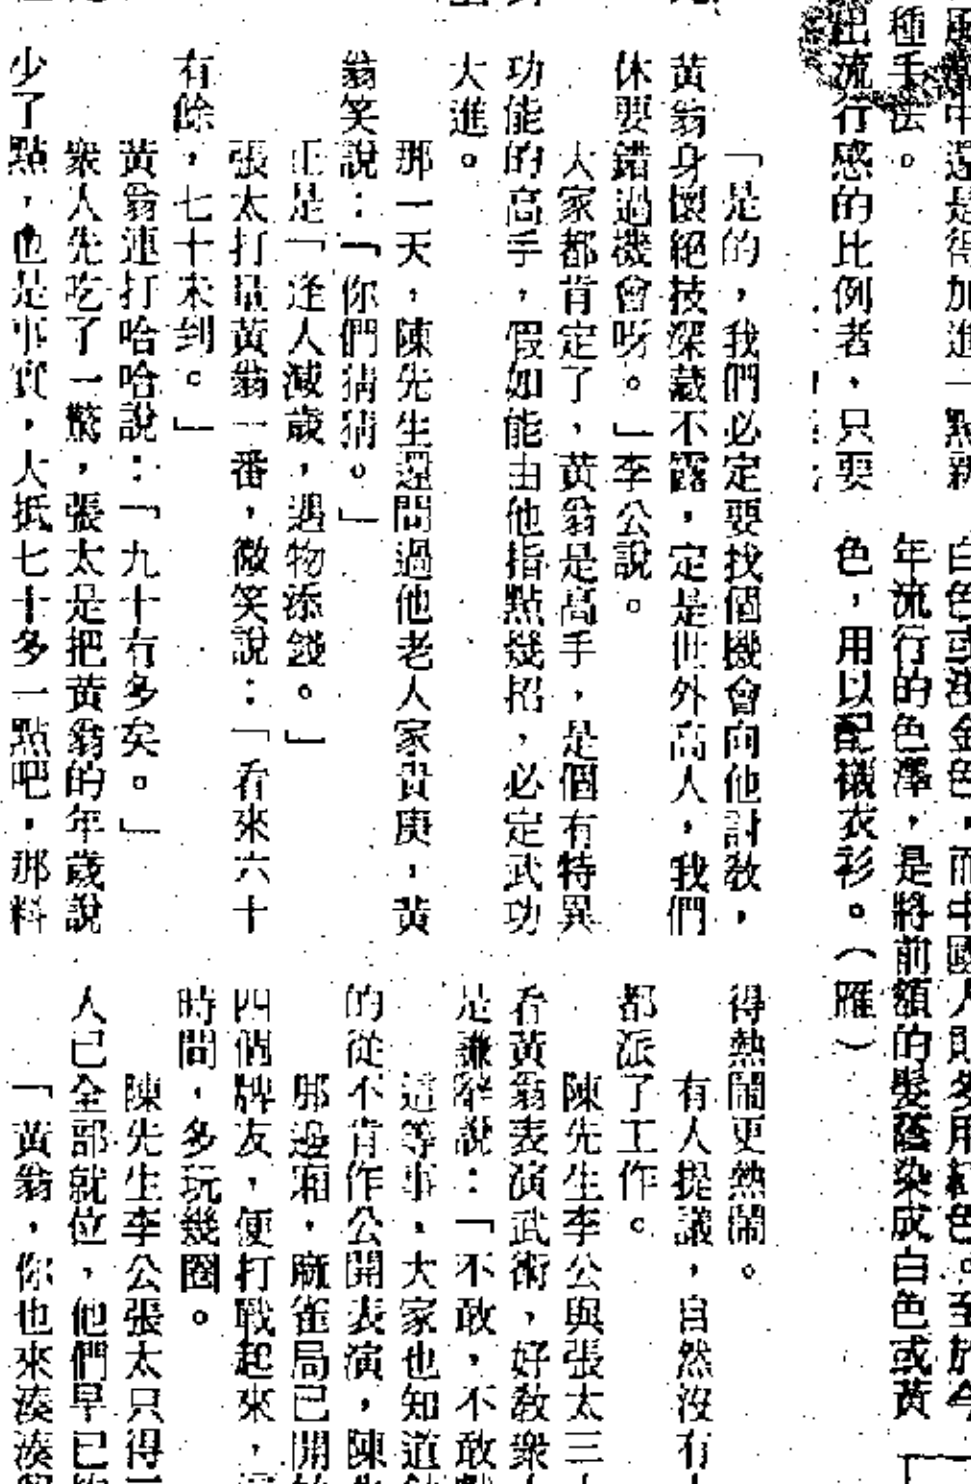 種手法。
出流行感的比例者，只要
年流行的色澤，是將前額的髮蔭染成白色或黃
色，用以配襯衣衫。（雁）
「是的，我們必定要找個機會向他討教，
黃翁身懷絕技深藏不露，定是世外高人，我們
休要錯過機會呀。」李公說。
大家都肯定了，黃翁是高手，是個有特異
功能的高手，假如能由他指點幾招，必定武功
大進。
那一天，陳先生還問過他老人家貴庚，黃
翁笑說：「你們猜猜。」
正是「逢人減歲，遇物添錢。」
張太打量黃翁一番，微笑說：「看來六十
有餘，七十未到。」
黃翁連打哈哈說：「九十有多矣。」
衆人先吃了一驚，張太是把黃翁的年歲說
少了點，也是事實，大抵七十多一點吧，那料
得熱鬧更熱鬧。
有人提議，自然沒有
都派了工作。
陳先生李公與張太三
看黃翁表演武術，好教衆
是謙辭說：「不敢，不敢
這等事，大家也知道
的從不肯作公開表演，陳
那邊廂，麻雀局已開
四個牌友，便打戰起來，
時間，多玩幾圈。
陳先生李公張太只得
人已全部就位，他們早已
「黃翁，你也來湊湊